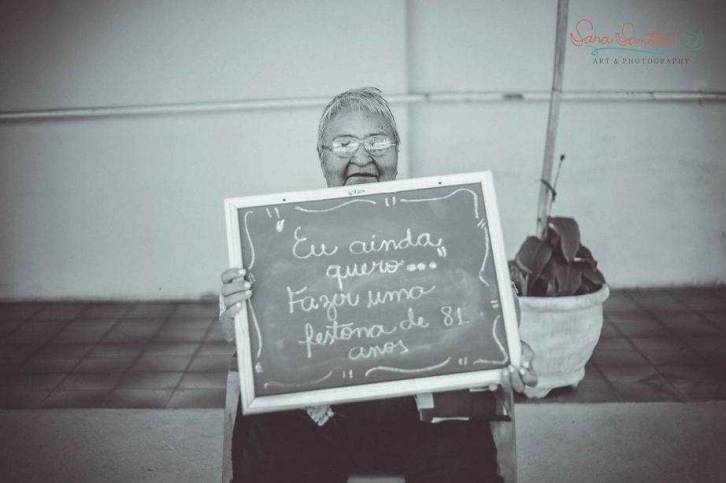 Sara Santos
ART & PHOTOGRAPHY
"Eu ainda
quero..."
Fazer uma
festona de 81
anos